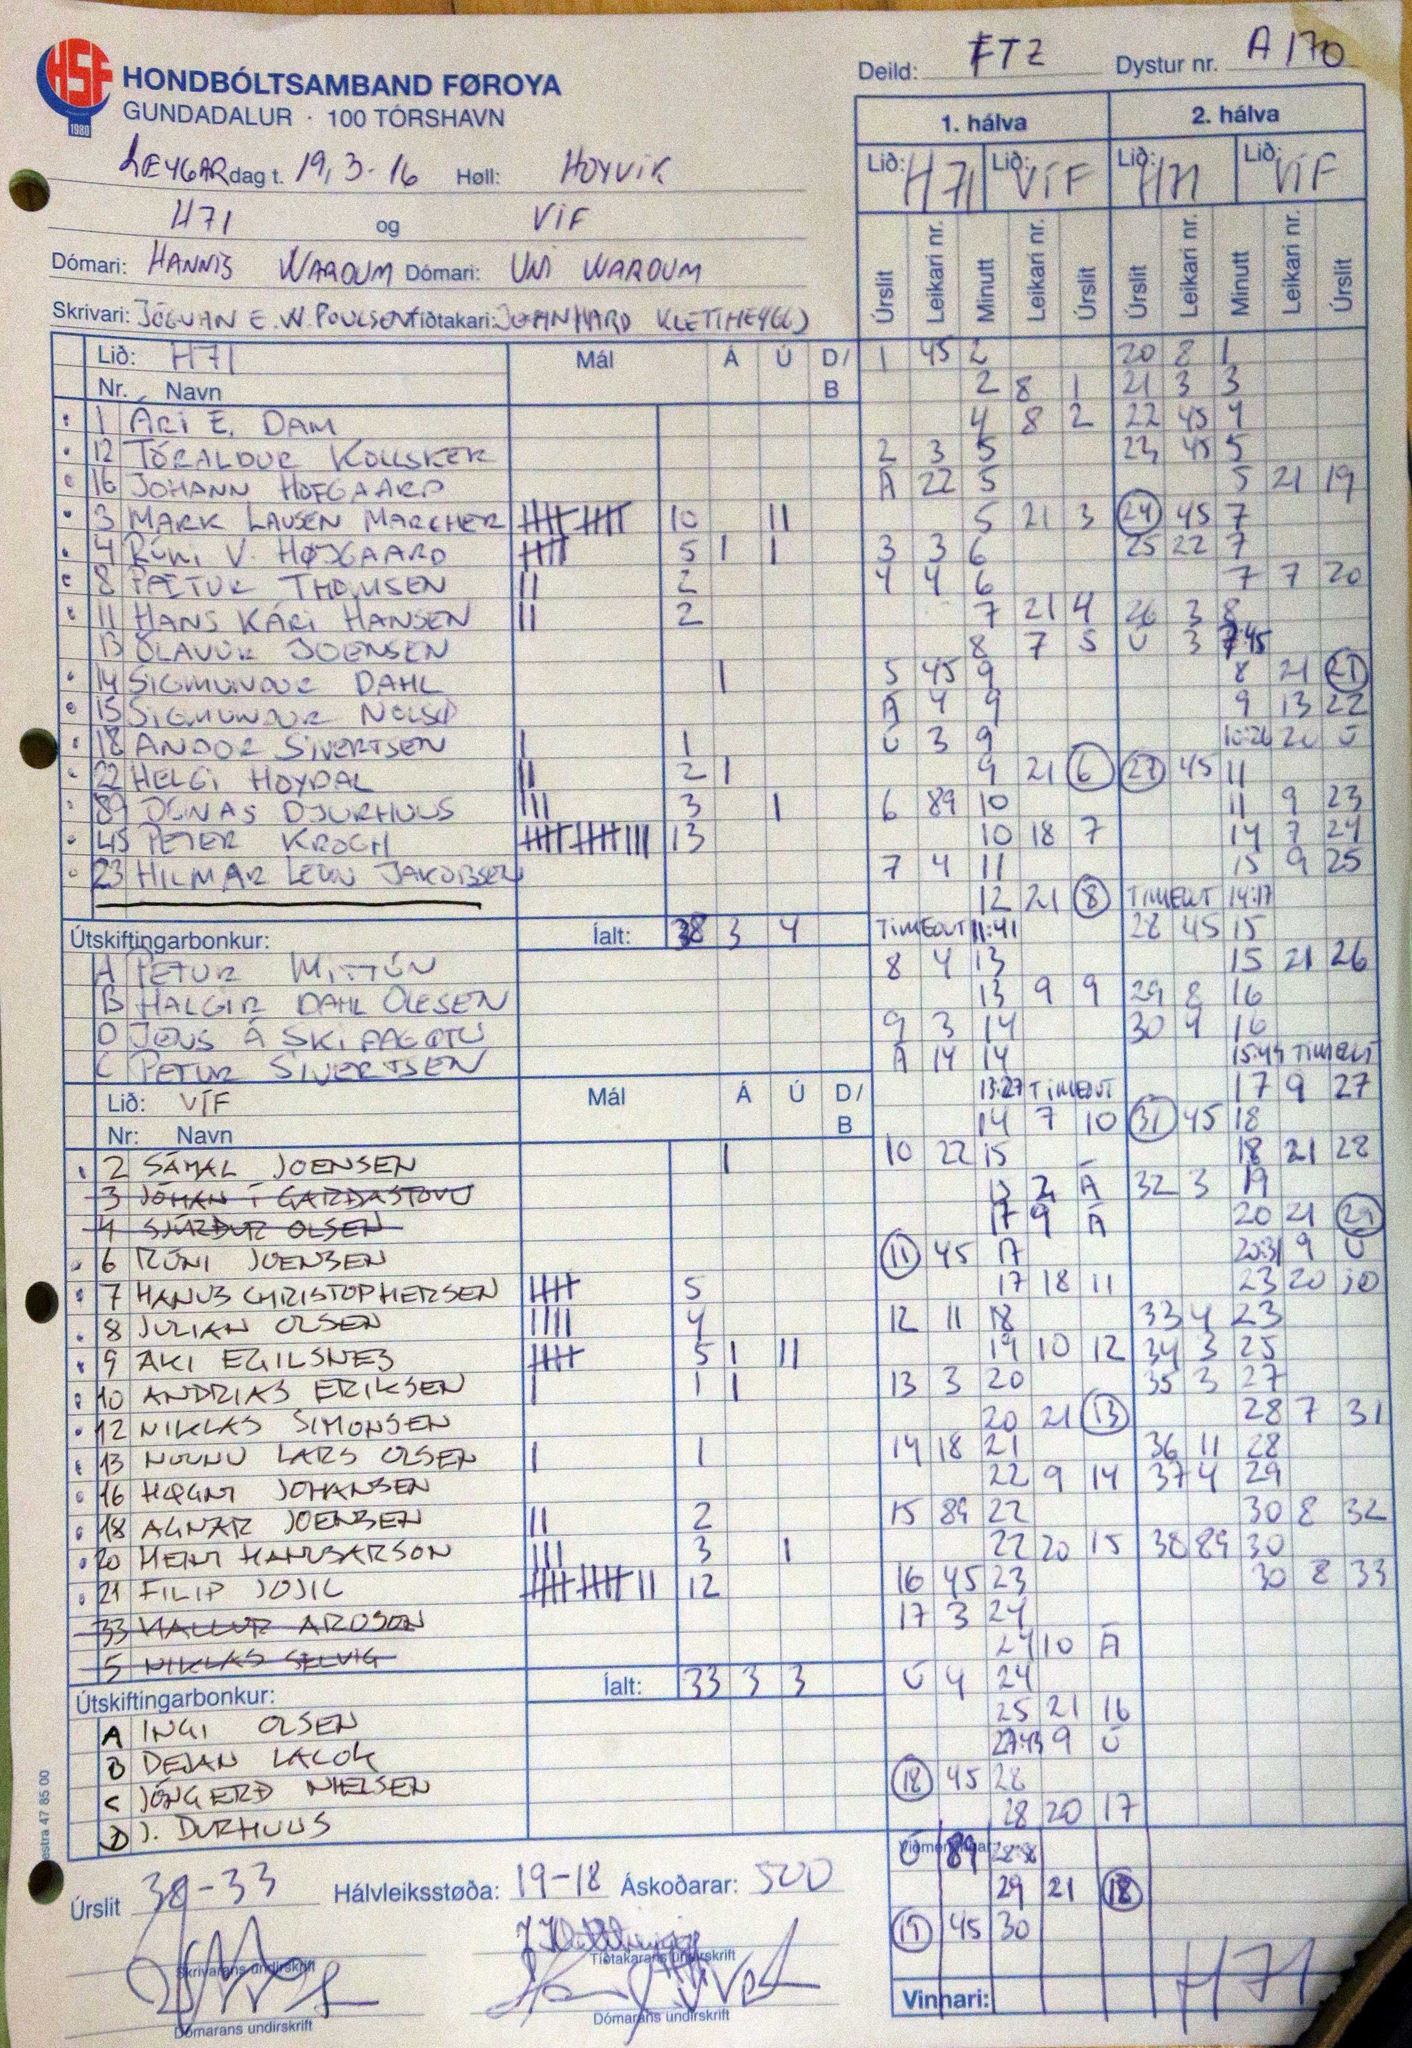 HONDBÓLTSAMBAND FØROYA
GUNDADALUR · 100 TÓRSHAVN
Deild: FTZ Dystur nr. A 170
LEYGARdag t. 19,3-16 Høll: HOYVIK
H71 og VÍF
Dómari: HANNIS WARDUM Dómari: UNI WARDUM
Skrivari: JÓGVAN E.W. POULSEN Tíðtakari: JOHNHARD KLETTHEYGGJ
1. hálva 2. hálva
Lið: H71 Lið: VÍF Lið: H71 Lið: VÍF
Úrslit Leikari nr. Minutt Leikari nr. Úrslit Úrslit Leikari nr. Minutt Leikari nr. Úrslit
Lið: H71 Mál Á Ú D/B
Nr. Navn
1 ÁRI E. DAM
12 TÓRALDUR KOLLSKER
16 JOHANN HOFGAARD
3 MARK LAUSEN MARCHER 10 II
4 RÚNI V. HØJGAARD 5 I I
8 PÆTUR THOMSEN 2
11 HANS KÁRI HANSEN 2
13 ÓLAVUR JOENSEN
14 SIGMUNDUR DAHL I
15 SIGMUNDUR NOLSØ
18 ANDOR SIVERTSEN I 1
22 HELGI HOYDAL II 2 I
89 JÓNAS DJURHUUS III 3 I
45 PETER KROGH 13
23 HILMAR LEON JAKOBSEN
Útskiftingarbonkur: Íalt: 38 3 4
A PETUR MITTÚN
B HALGIR DAHL OLESEN
D JENS Á SKIPAGØTU
C PETUR SIVERTSEN
Lið: VÍF Mál Á Ú D/B
Nr: Navn
2 SÁMAL JOENSEN I
3 JÓHAN Í GARÐASTOVU
4 SJÚRÐUR OLSEN
6 RÚNI JOENSEN
7 HANUS CHRISTOPHERSEN 5
8 JULIAN OLSEN IIII 4
9 ÁKI EGILSNES 5 I II
10 ANDRIAS ERIKSEN I 1 I
12 NIKLAS SIMONSEN
13 LARS OLSEN I 1
16 HØGNI JOHANSEN
18 AGNAR JOENSEN II 2
20 HEINI HANUSARSON III 3 I
21 FILIP JOJIC 12
33 HALLUR ARDSON
5 NIKLAS SELVIG
Útskiftingarbonkur: Íalt: 33 3 3
A INGI OLSEN
B DEJAN LACOK
C JÓNGERÐ NIELSEN
D J. DURHUUS
1 45 2
2 8 1
4 8 2
2 3 5
Á 22 5
5 21 3
3 3 6
4 4 6
7 21 4
8 7 5
5 45 9
Á 4 9
Ú 3 9
9 21 6
6 89 10
10 18 7
7 4 11
12 21 8
TIMEOUT 11:41
8 4 13
13 9 9
9 3 14
Á 14 14
13:27 TIMEOUT
14 7 10
10 22 15
2 Á
17 9 Á
11 45 17
17 18 11
12 11 18
19 10 12
13 3 20
20 21 13
14 18 21
22 9 14
15 89 22
22 20 15
16 45 23
17 3 24
24 10 Á
Ú 4 24
25 21 16
27:43 9 Ú
18 45 28
28 20 17
Viðmerkingar:
Ú 89
29 21 18
19 45 30
20 8 1
21 3 3
22 45 4
23 45 5
5 21 19
24 45 7
25 22 7
7 7 20
26 3 8
Ú 3 7:45
8 21 21
9 13 22
10:26 20 Ú
27 45 11
11 9 23
14 7 24
15 9 25
TIMEOUT 14:17
28 45 15
15 21 26
29 8 16
30 4 16
15:44 TIMEOUT
17 9 27
31 45 18
18 21 28
32 3 19
20 21 29
20:31 9 Ú
23 20 30
33 4 23
34 3 25
35 3 27
28 7 31
36 11 28
37 4 29
30 8 32
38 89 30
30 8 33
Úrslit 38-33 Hálvleiksstøða: 19-18 Áskoðarar: 500
Skrivarans undirskrift Tíðtakarans undirskrift
Dómarans undirskrift Dómarans undirskrift
Vinnari: H71
estra 47 85 00
HSF
1980